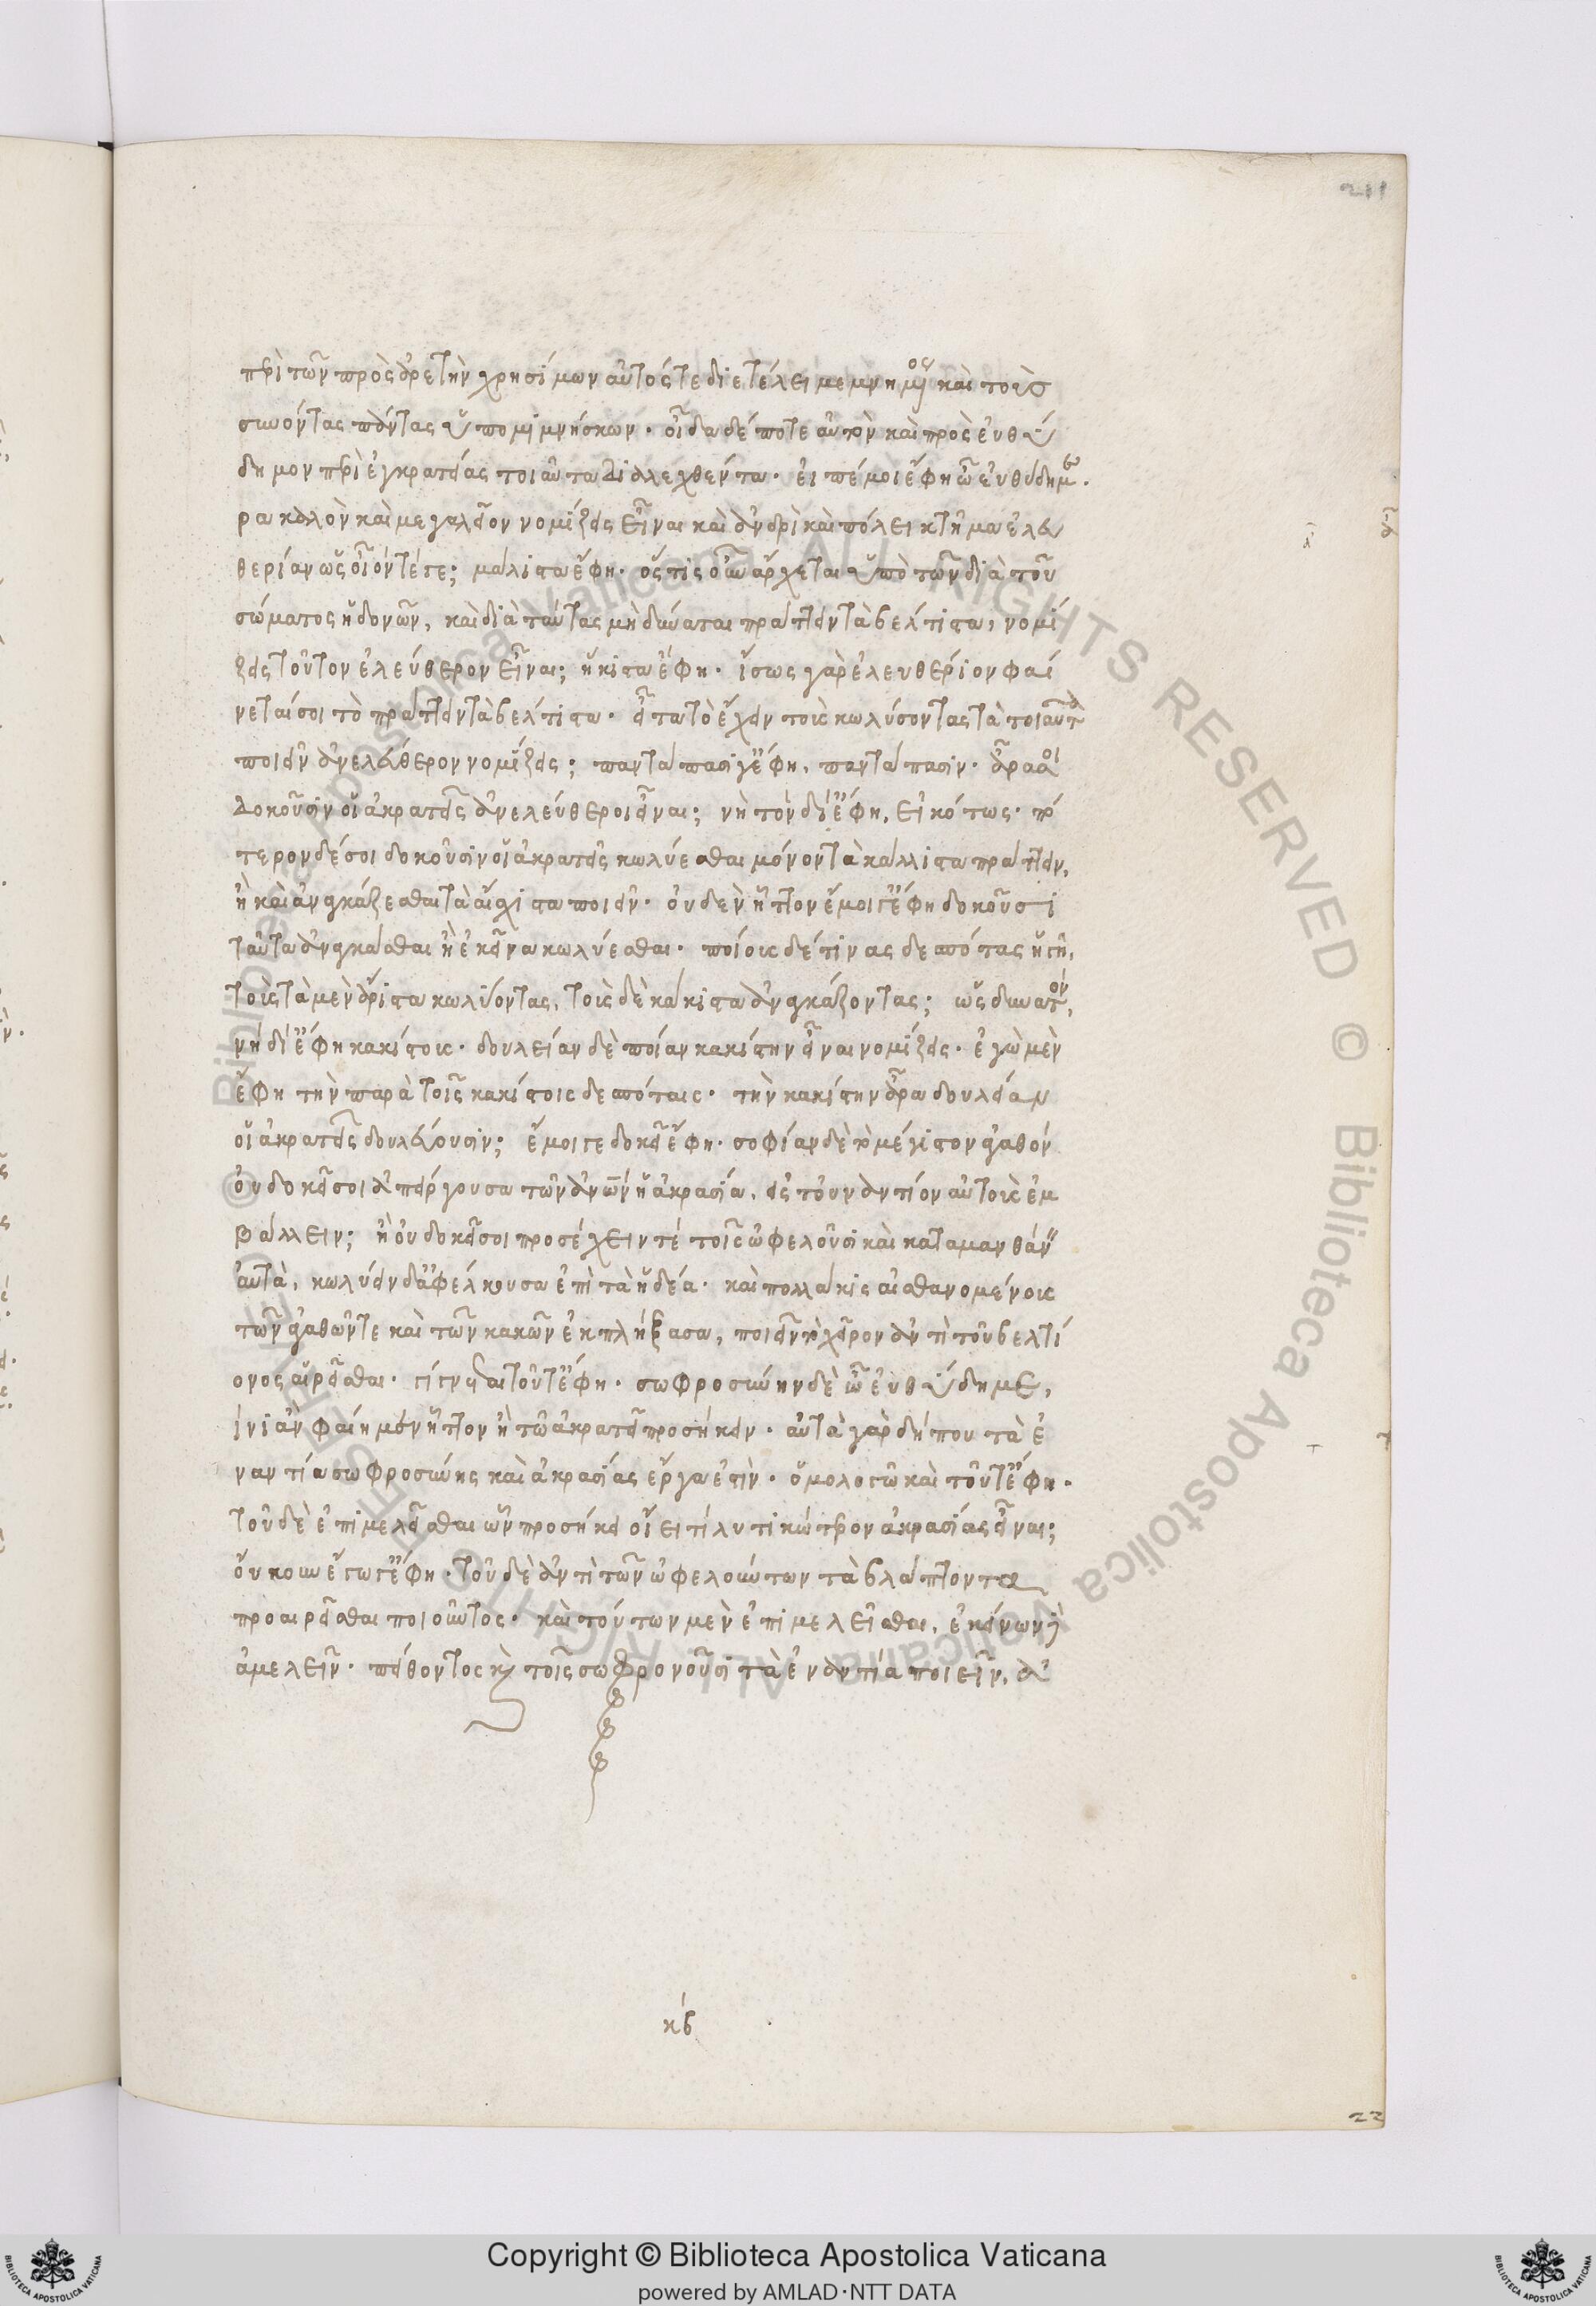 211
περὶ τῶν πρὸς ἀρετὴν χρησίμων αὐτός τε διετέλει μεμνημένος καὶ τοὺς
συνόντας πάντας ὑπομιμνήσκων. οἶδα δέ ποτε αὐτὸν καὶ πρὸς εὐθύ
δημον περὶ ἐγκρατείας τοιαῦτα διαλεχθέντα. εἰπέ μοι ἔφη ὦ εὐθύδημε.
ρα καλὸν καὶ μεγαλεῖον νομίζεις εἶναι καὶ ἀνδρὶ καὶ πόλει κτῆμα ἐλευ
θερίαν ὡς οἷόν τέ γε; μάλιστα ἔφη. ὅστις οὖν ἄρχεται ὑπὸ τῶν διὰ τοῦ
σώματος ἡδονῶν, καὶ διὰ ταύτας μὴ δύναται πράττειν τὰ βέλτιστα, νομί
ζεις τοῦτον ἐλεύθερον εἶναι; ἥκιστα ἔφη. ἴσως γὰρ ἐλευθέριον φαί
νεταί σοι τὸ πράττειν τὰ βέλτιστα. εἶτα τὸ ἔχειν τοὺς κωλύσοντας τὰ τοιαῦτα
ποιεῖν ἀνελεύθερον νομίζεις; παντάπασί γ' ἔφη, παντάπασιν. ἆρά σοι
δοκοῦσιν οἱ ἀκρατεῖς ἀνελεύθεροι εἶναι; νὴ τὸν δί' ἔφη, εἰκότως. πό
τερον δέ σοι δοκοῦσιν οἱ ἀκρατεῖς κωλύεσθαι μόνον τὰ κάλλιστα πράττειν,
ἢ καὶ ἀναγκάζεσθαι τὰ αἴσχιστα ποιεῖν. οὐδὲν ἧττον ἔμοιγ' ἔφη δοκοῦσι
ταῦτα ἀναγκάζεσθαι ἢ ἐκεῖνα κωλύεσθαι. ποίους δέ τινας δεσπότας ἡγῇ,
τοὺς τὰ μὲν ἄριστα κωλύοντας, τοὺς δὲ κάκιστα ἀναγκάζοντας; ὡς δυνατὸν,
νὴ δί' ἔφη κακίστους. δουλείαν δὲ ποίαν κακίστην εἶναι νομίζεις. ἐγὼ μὲν
ἔφη τὴν παρὰ τοῖς κακίστοις δεσπόταις. τὴν κακίστην ἆρα δουλείαν
οἱ ἀκρατεῖς δουλεύουσιν; ἔμοιγε δοκεῖ ἔφη. σοφίαν δὲ τὸ μέγιστον ἀγαθὸν
οὐ δοκεῖ σοι ἀπείργουσα τῶν ἀνων ἡ ἀκρασία, εἰς τοὐναντίον αὐτοὺς ἐμ
βάλλειν; ἢ οὐ δοκεῖ σοι προσέχειν τέ τοῖς ὠφελοῦσι καὶ καταμανθάνειν
αὐτὰ, κωλύειν ἀφέλκουσα ἐπὶ τὰ ἡδέα. καὶ πολλάκις αἰσθανομένους
τῶν ἀγαθῶν τε καὶ τῶν κακῶν ἐκπλήξασα, ποιεῖν τὸ χεῖρον ἀντὶ τοῦ βελτί
ονος αἱρεῖσθαι. γίγνεται τοῦτ' ἔφη. σωφροσύνην δὲ ὦ εὐθύδημε,
ίνι ἂν φαίημεν ἧττον ἢ τῷ ἀκρατεῖ προσήκειν. αὐτὰ γὰρ δήπου τὰ ἐ
ναντία σωφροσύνης καὶ ἀκρασίας ἔργα ἐστίν. ὁμολογῶ καὶ τοῦτ' ἔφη.
τοῦ δὲ ἐπιμελεῖσθαι ὧν προσήκει οἴει τί λυτικώτερον ἀκρασίας εἶναι;
οὔκουν ἔγωγ' ἔφη. τοῦ δὲ ἀντὶ τῶν ὠφελούντων τὰ βλάπτοντα
προαιρεῖσθαι ποιοῦντος. καὶ τούτων μὲν ἐπιμελεῖσθαι, ἐκείνων δὲ
ἀμελεῖν. πείθοντος καὶ τοῖς σωφρονοῦσι τὰ ἐναντία ποιεῖν, ἀ
κβ
22
Copyright © Biblioteca Apostolica Vaticana
powered by AMLAD·NTT DATA